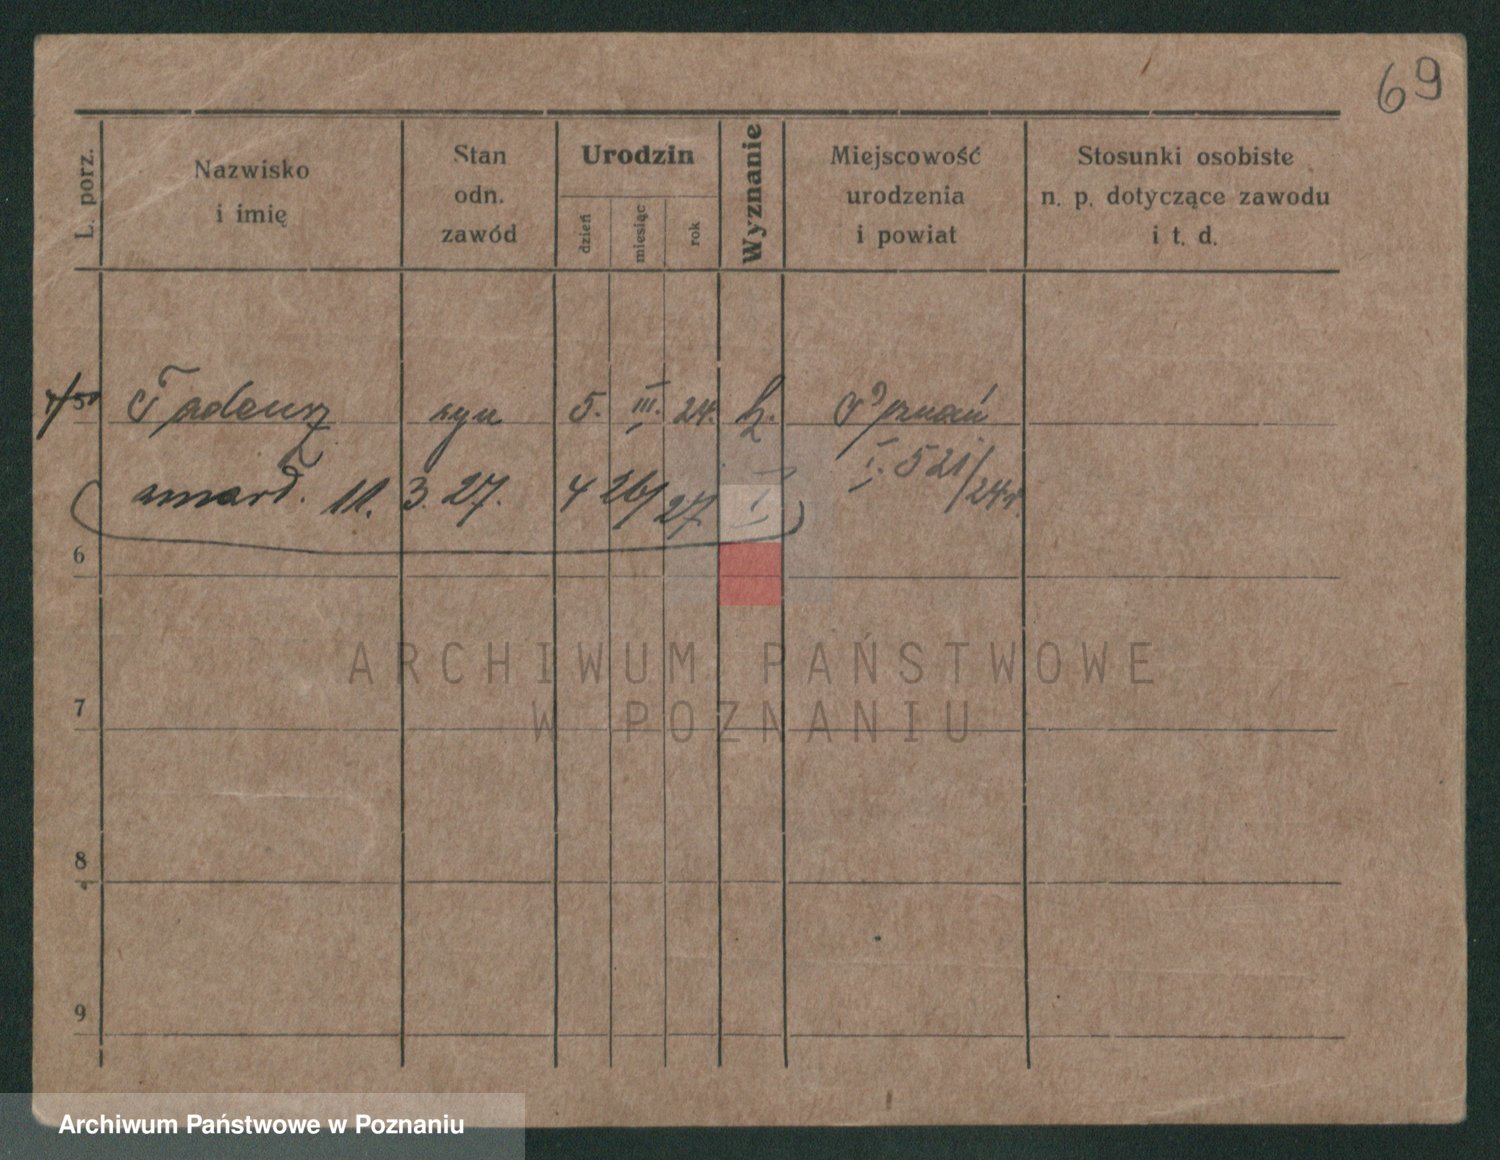 69
L. porz.
Nazwisko
i imię
Stan
odn.
zawód
Urodzin
dzień
miesiąc
rok
Wyznanie
Miejscowość
urodzenia
i powiat
Stosunki osobiste
n. p. dotyczące zawodu
i t. d.
5 Tadeusz syn 5. III. 24. k. Poznań
I. 521/24
zmarł. 11. 3. 27. 4 26/27 I
6
7
8
9
ARCHIWUM PAŃSTWOWE
W POZNANIU
Archiwum Państwowe w Poznaniu